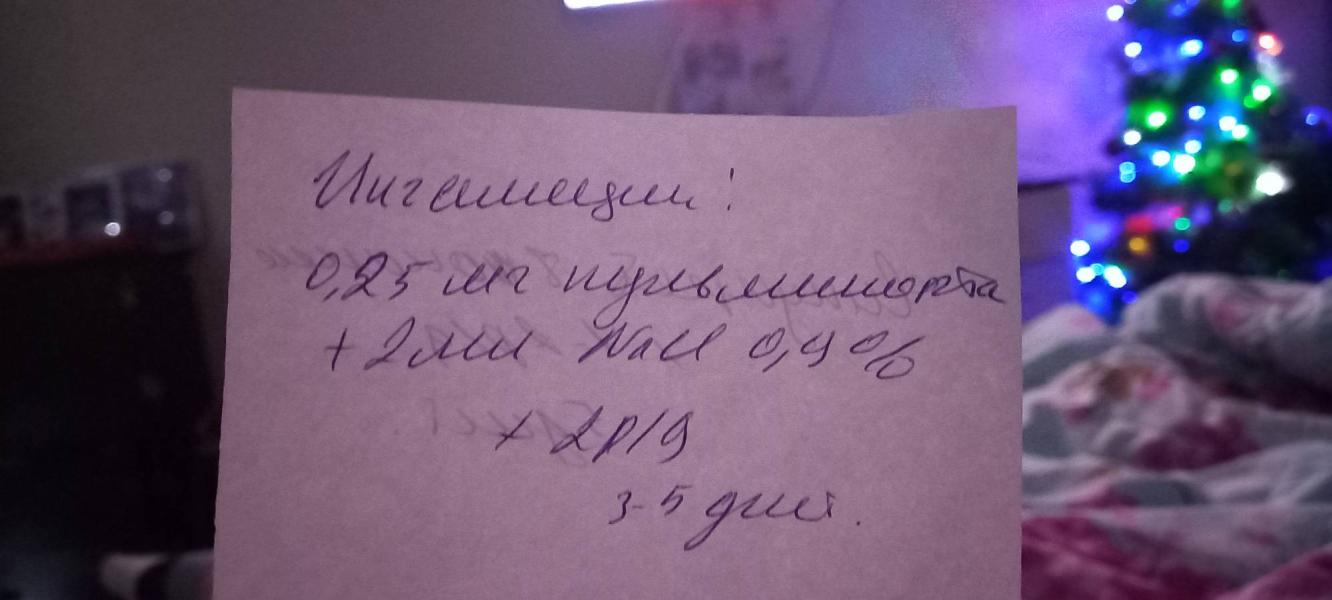 Ингаляции!
0,25 мг пульмикорта
+ 2 мл NaCl 0,9%
x 2 р/д
3-5 дней.